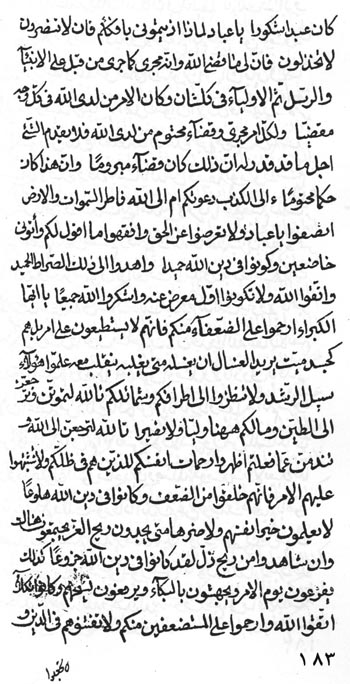 كان عبدا شكورا يا عباد لماذا ارميتموني بافككم فان لا تنصرون
لا تخذلون فان لي ما قضى الله والله مجرى كما جرى من قبل على الانبياء
والرسل ثم الاولياء في كل شان وكان الامر من لدى الله في كل
مقضيا ولكل امر مجرى وقضاء محتوم من لدى الله فلا يقدم الشيء
اجل ما قد قدر له ان ذلك كان قضاء مبروما وان هذا كان
حكما محتوما ء الى الكذب دعوتكم ام الى الله فاطر السموات والارض
انصفوا يا عباد ولا تعرضوا عن الحق وافقهوا ما اقول لكم وأتوني
خاضعين وكونوا في دين الله حميدا واهدوا الى ذلك الصراط الحميد
واتقوا الله ولا تكونوا اول معرض عنه واشكروا الله جميعا يا ايها
الكبراء ارحموا على الضعفاء منكم فانهم لا يستطيعون على امر بل هم
كجسد ميت يريد الغسال ان يغسله متى يقلبه ينقلب معه علموا هؤلاء
سبيل الرشد ولا تنظروا الى اطرافكم وشمائلكم تالله لتموتن
الى الطين وما لكم هيهنا وليا ولا نصيرا تالله لترجعن الى الله و
تندمن عما فعلتم اظهروا رحمات انفسكم للذين هم في ظلكم ولا تشتبهوا
عليهم الامر فانهم خلقوا من الضعف وكانوا في دين الله هلوعا
لا يعلمون خير انفسهم ولا ضرها متى يجدون ريح العز يجتمعون
وان شاهدوا من ريح ذل لقد كانوا في دين الله جزوعا كذلك
يفزعون يوم الامر ويجهشون بالبكاء ويرفعون
اتقوا الله وارحموا على المستضعفين منكم ولا تفتنوهم في الدين و
١٨٣